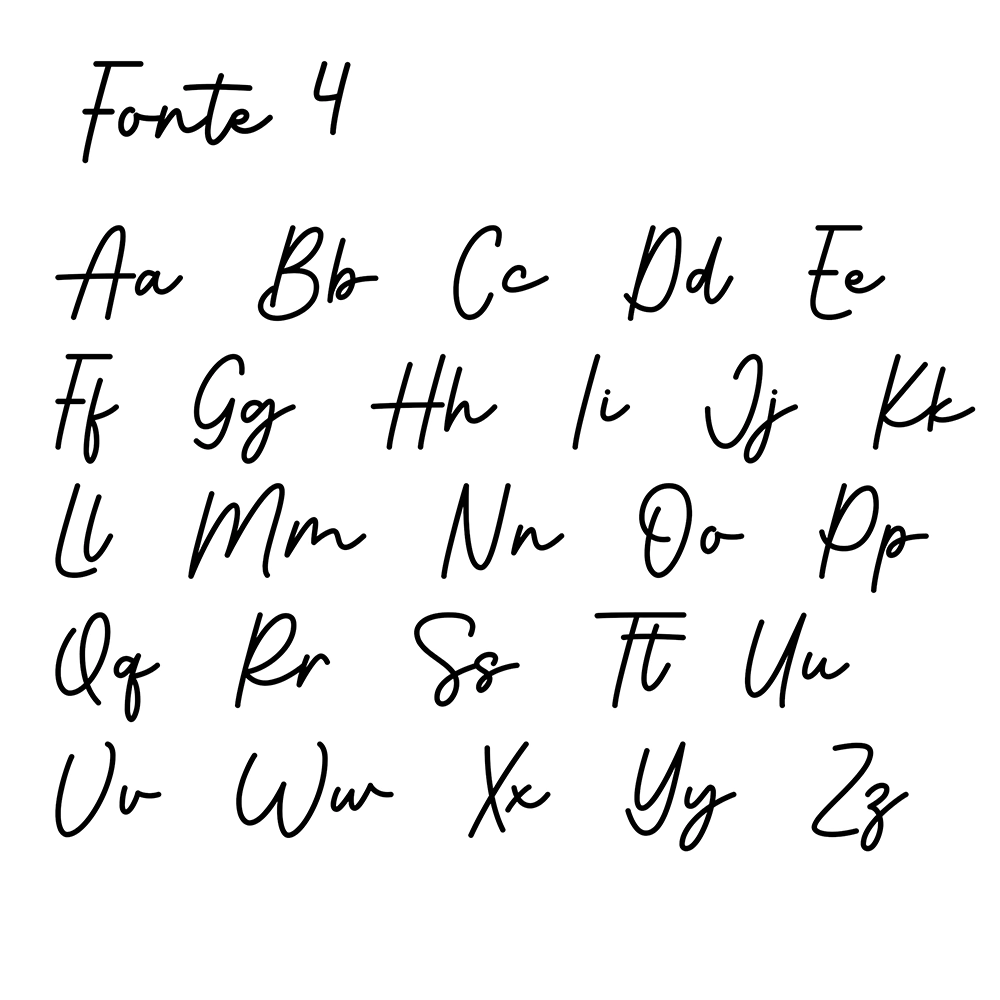 Fonte 4
Aa Bb Cc Dd Ee
Ff Gg Hh Ii Jj Kk
Ll Mm Nn Oo Pp
Qq Rr Ss Tt Uu
Vv Ww Xx Yy Zz